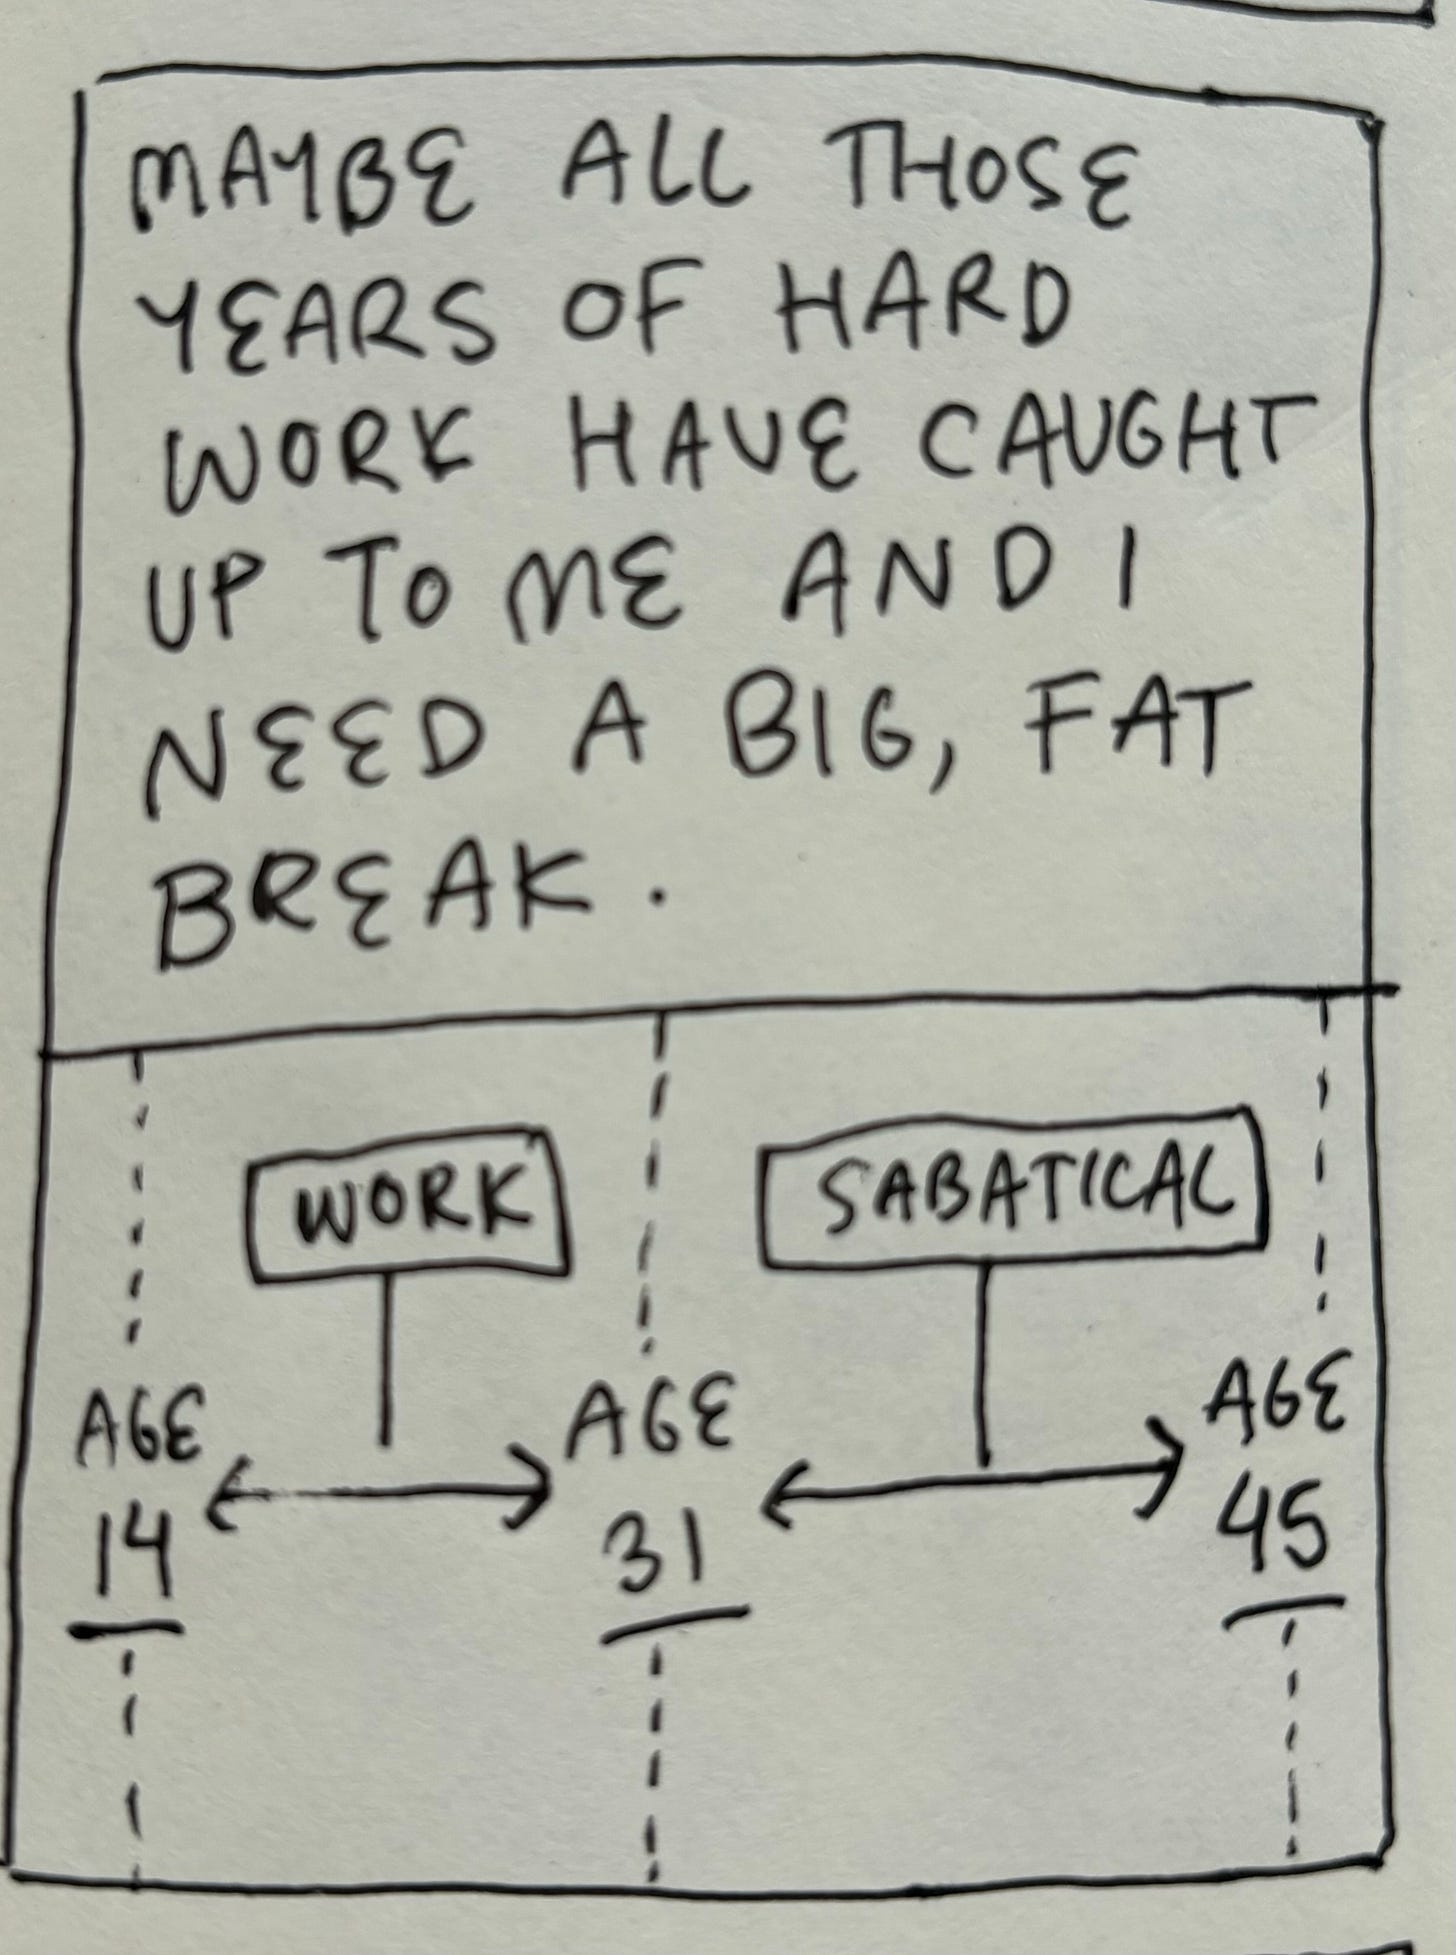 MAYBE ALL THOSE
YEARS OF HARD
WORK HAVE CAUGHT
UP TO ME AND I
NEED A BIG, FAT
BREAK.
WORK
SABATICAL
AGE
14
AGE
31
AGE
45